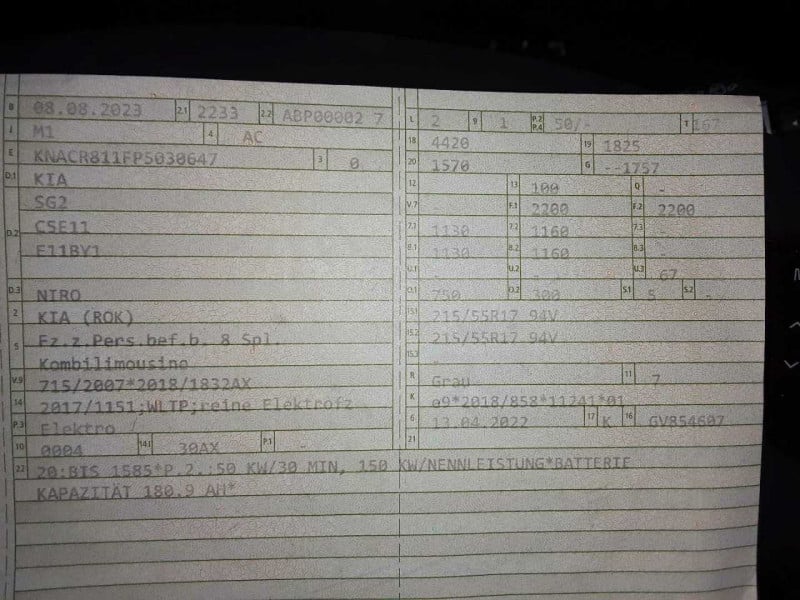 B 08.08.2023 2.1 2233 2.2 ABP00002 7
J M1 4 AC
E KNACR811FP5030647 3 0
D.1 KIA
SG2
D.2 CSE11
E11BY1
D.3 NIRO
2 KIA (ROK)
5 Fz.z.Pers.bef.b. 8 Spl.
Kombilimousine
V.9 715/2007*2018/1832AX
14 2017/1151;WLTP;reine Elektrofz
P.3 Elektro
10 0004 14.1 30AX P.1 -
22 20:BIS 1585*P.2.:50 KW/30 MIN, 150 KW/NENNLEISTUNG*BATTERIE
KAPAZITÄT 180.9 AH*
L 2 9 1 P.2 P.4 50/- T 167
18 4420 19 1825
20 1570 G --1757
12 - 13 100 Q -
V.7 - F.1 2200 F.2 2200
7.1 1130 7.2 1160 7.3 -
8.1 1130 8.2 1160 8.3 -
U.1 - U.2 - U.3 67
O.1 750 O.2 300 S.1 5 S.2 -
15.1 215/55R17 94V
15.2 215/55R17 94V
15.3 -
R Grau 11 7
K e9*2018/858*11241*01
6 13.04.2022 17 K 16 GV854607
21